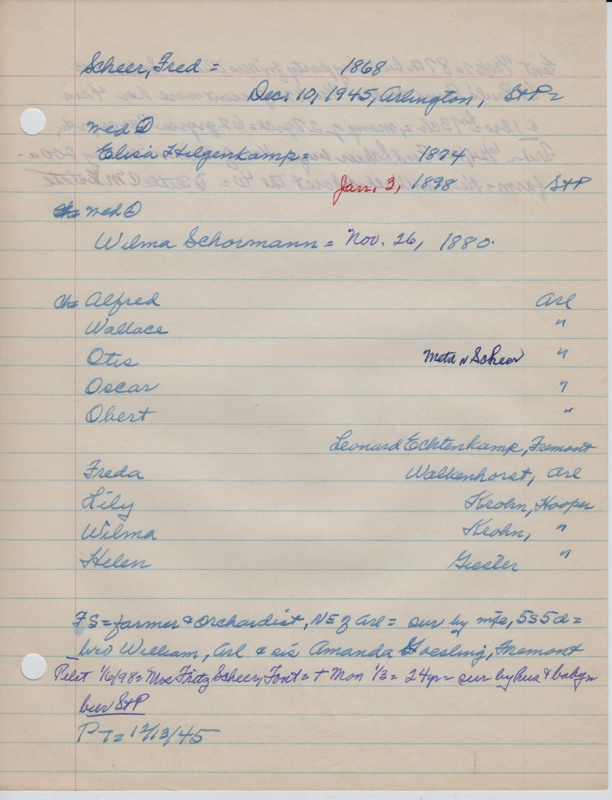 Scheer, Fred = 1868
Dec. 10, 1945, Arlington, StP=
med ①
Elisa Hilgenkamp = 1874
Jan. 3, 1898 StP
med ②
Wilma Schormann = Nov. 26, 1880.
Ch= Alfred Arl
Wallace "
Otis Meta N Scheer "
Oscar "
Obert "
Leonard Echtenkamp, Fremont
Freda Walkenhorst, Arl
Lily Krohn, Hooper
Wilma Krohn, "
Helen Giesler "
FS = farmer & orchardist, NE of Arl = sur by mfe, 5s 5d =
bro William, Arl & sis Amanda Goesling, Fremont
Pilot 1/6/98 = Mrs Fritz Scheer, Font = + Mon 1/3 = 24 yr = sur by hus &
bur StP
PT = 12/13/45